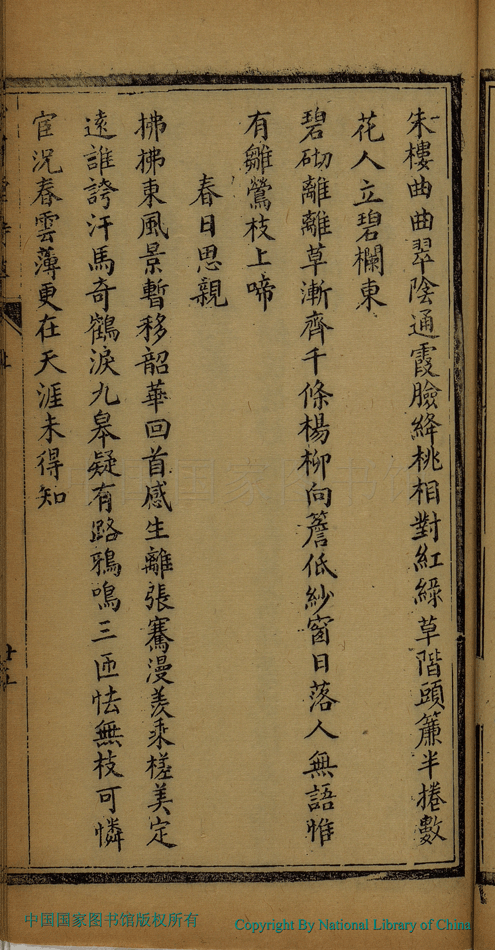 朱樓曲曲翠陰通霞臉絳桃相對紅綠草階頭簾半捲數
花人立碧欄東
碧砌離離草漸齊千條楊柳向簷低紗窗日落人無語惟
有雛鶯枝上啼
春日思親
拂拂東風景暫移韶華回首感生離張騫漫羨乘槎美定
遠誰誇汗馬奇鶴淚九皋疑有路鴉鳴三匝怯無枝可憐
宦況春雲薄更在天涯未得知
中国国家图书馆版权所有
Copyright By National Library of China